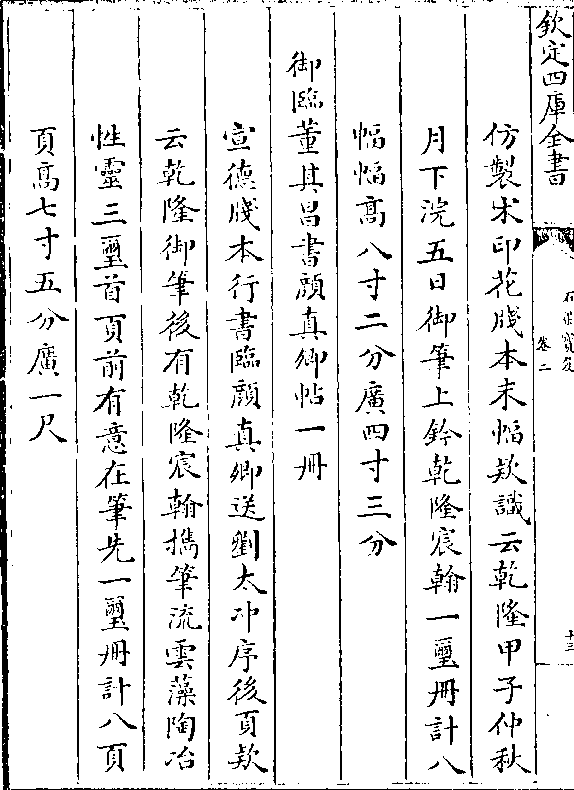 欽定四庫全書
石渠寶笈
卷二
十三
仿製宋印花牋本末幅款識云乾隆甲子仲秋
月下浣五日御筆上鈐乾隆宸翰一璽冊計八
幅幅高八寸二分廣四寸三分
御臨董其昌書顔真卿帖一冊
宣德牋本行書臨顔真卿送劉太冲序後頁款
云乾隆御筆後有乾隆宸翰擕筆流雲藻陶冶
性靈三璽首頁前有意在筆先一璽冊計八頁
頁高七寸五分廣一尺